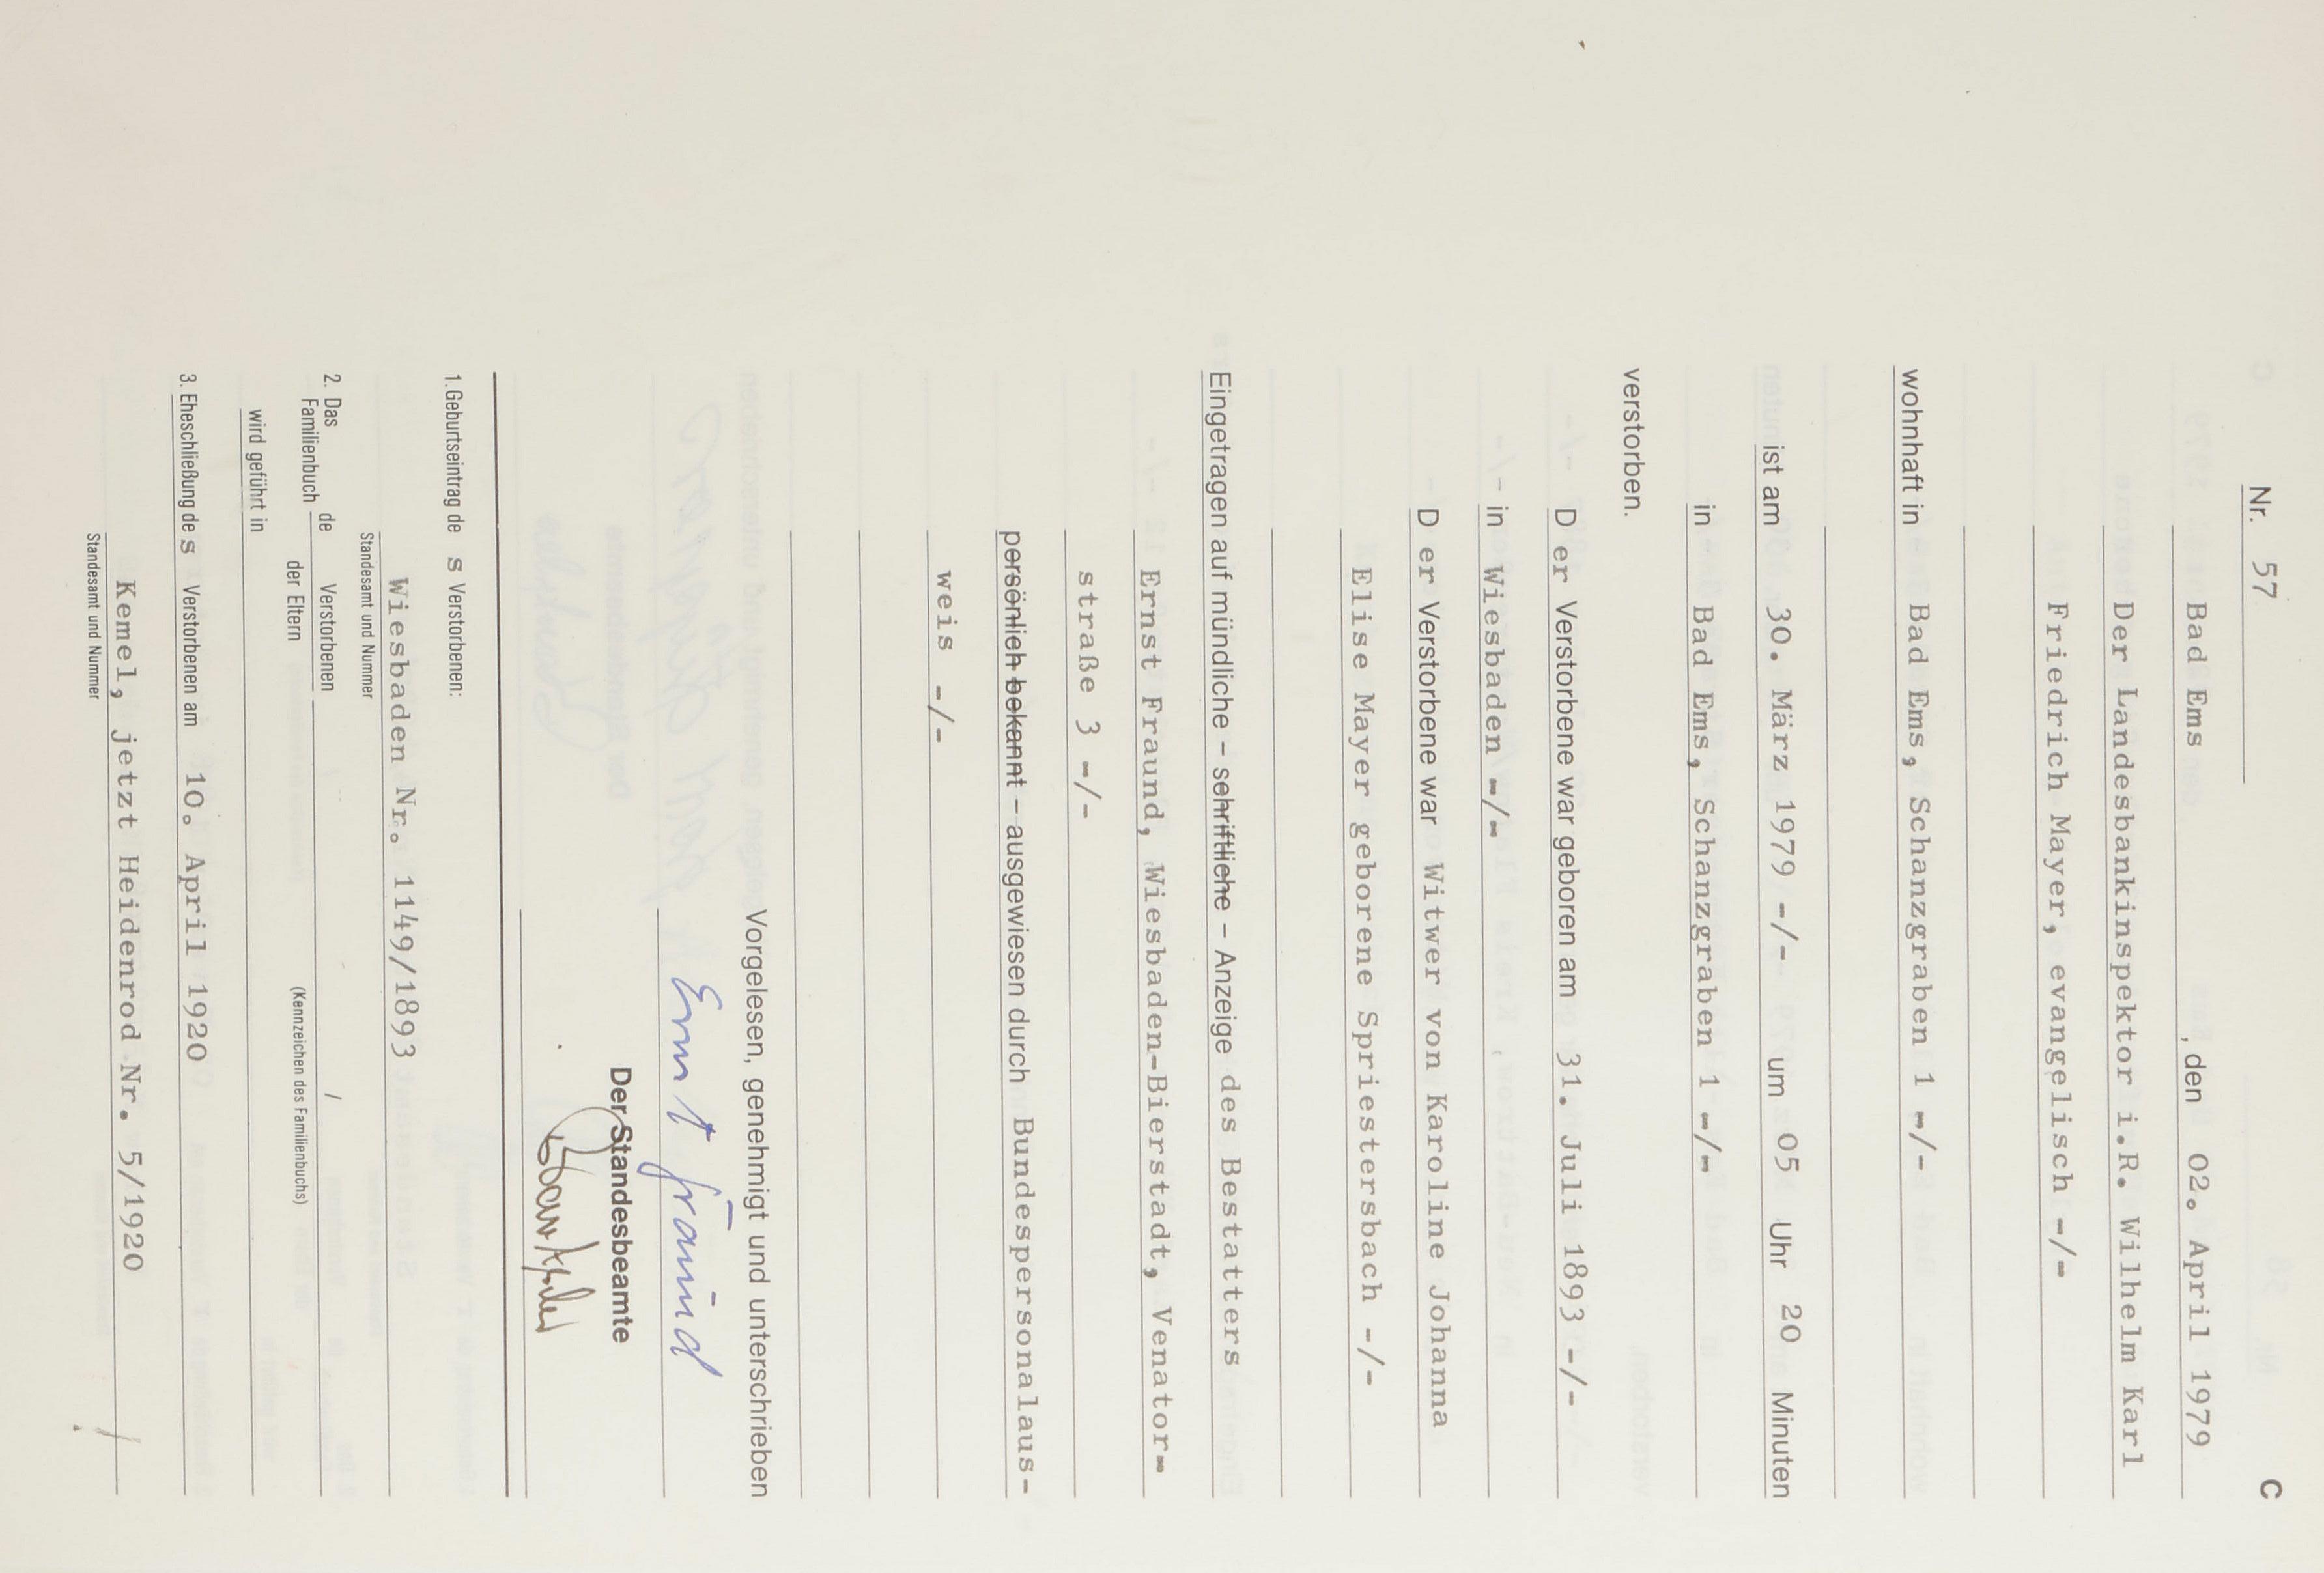 C
Nr. 57
Bad Ems, den 02. April 1979
Der Landesbankinspektor i.R. Wilhelm Karl
Friedrich Mayer, evangelisch -/-
wohnhaft in Bad Ems, Schanzgraben 1 -/-
ist am 30. März 1979 -/- um 05 Uhr 20 Minuten
in Bad Ems, Schanzgraben 1 -/-
verstorben.
Der Verstorbene war geboren am 31. Juli 1893 -/-
in Wiesbaden -/-
Der Verstorbene war Witwer von Karoline Johanna
Elise Mayer geborene Spriestersbach -/-
Eingetragen auf mündliche – schriftliche – Anzeige des Bestatters
Ernst Fraund, Wiesbaden-Bierstadt, Venator-
straße 3 -/-
persönlich bekannt – ausgewiesen durch Bundespersonalaus-
weis -/-
Vorgelesen, genehmigt und unterschrieben
Ernst Fraund
Der Standesbeamte
1. Geburtseintrag des Verstorbenen:
Wiesbaden Nr. 1149/1893
Standesamt und Nummer
2. Das Familienbuch de Verstorbenen / der Eltern /
(Kennzeichen des Familienbuchs)
wird geführt in
3. Eheschließung des Verstorbenen am 10. April 1920
Kemel, jetzt Heidenrod Nr. 5/1920
Standesamt und Nummer